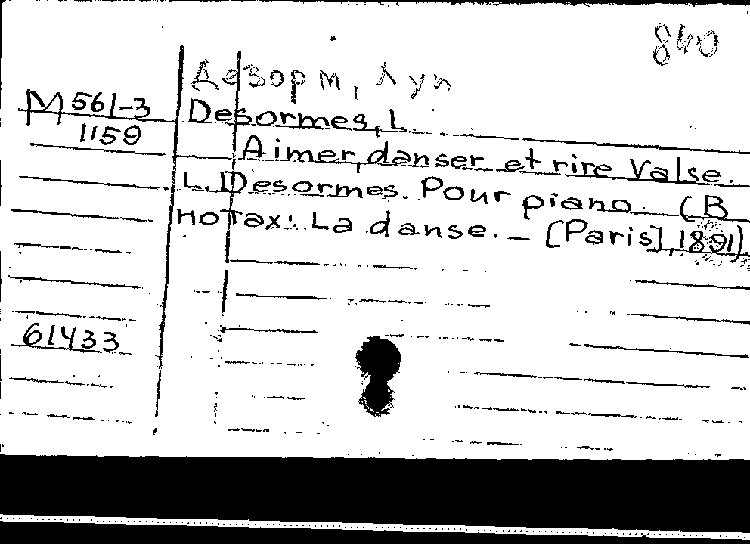 840
Дезорм, Луи
М 561-3
1159
Desormes, L.
Aimer, danser et rire Valse.
L. Desormes. Pour piano. (В
нотах: La danse. – [Paris], 1891)
61433